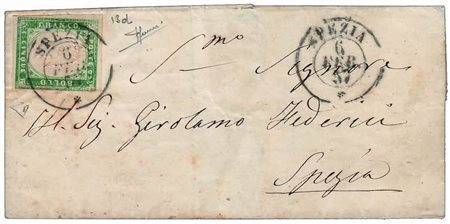 13d
FRANCO
BOLLO
SPEZIA
6
FEB
SPEZIA
6
FEB
57
S.mo Signore
Il Sig. Girolamo Federici
Spezia